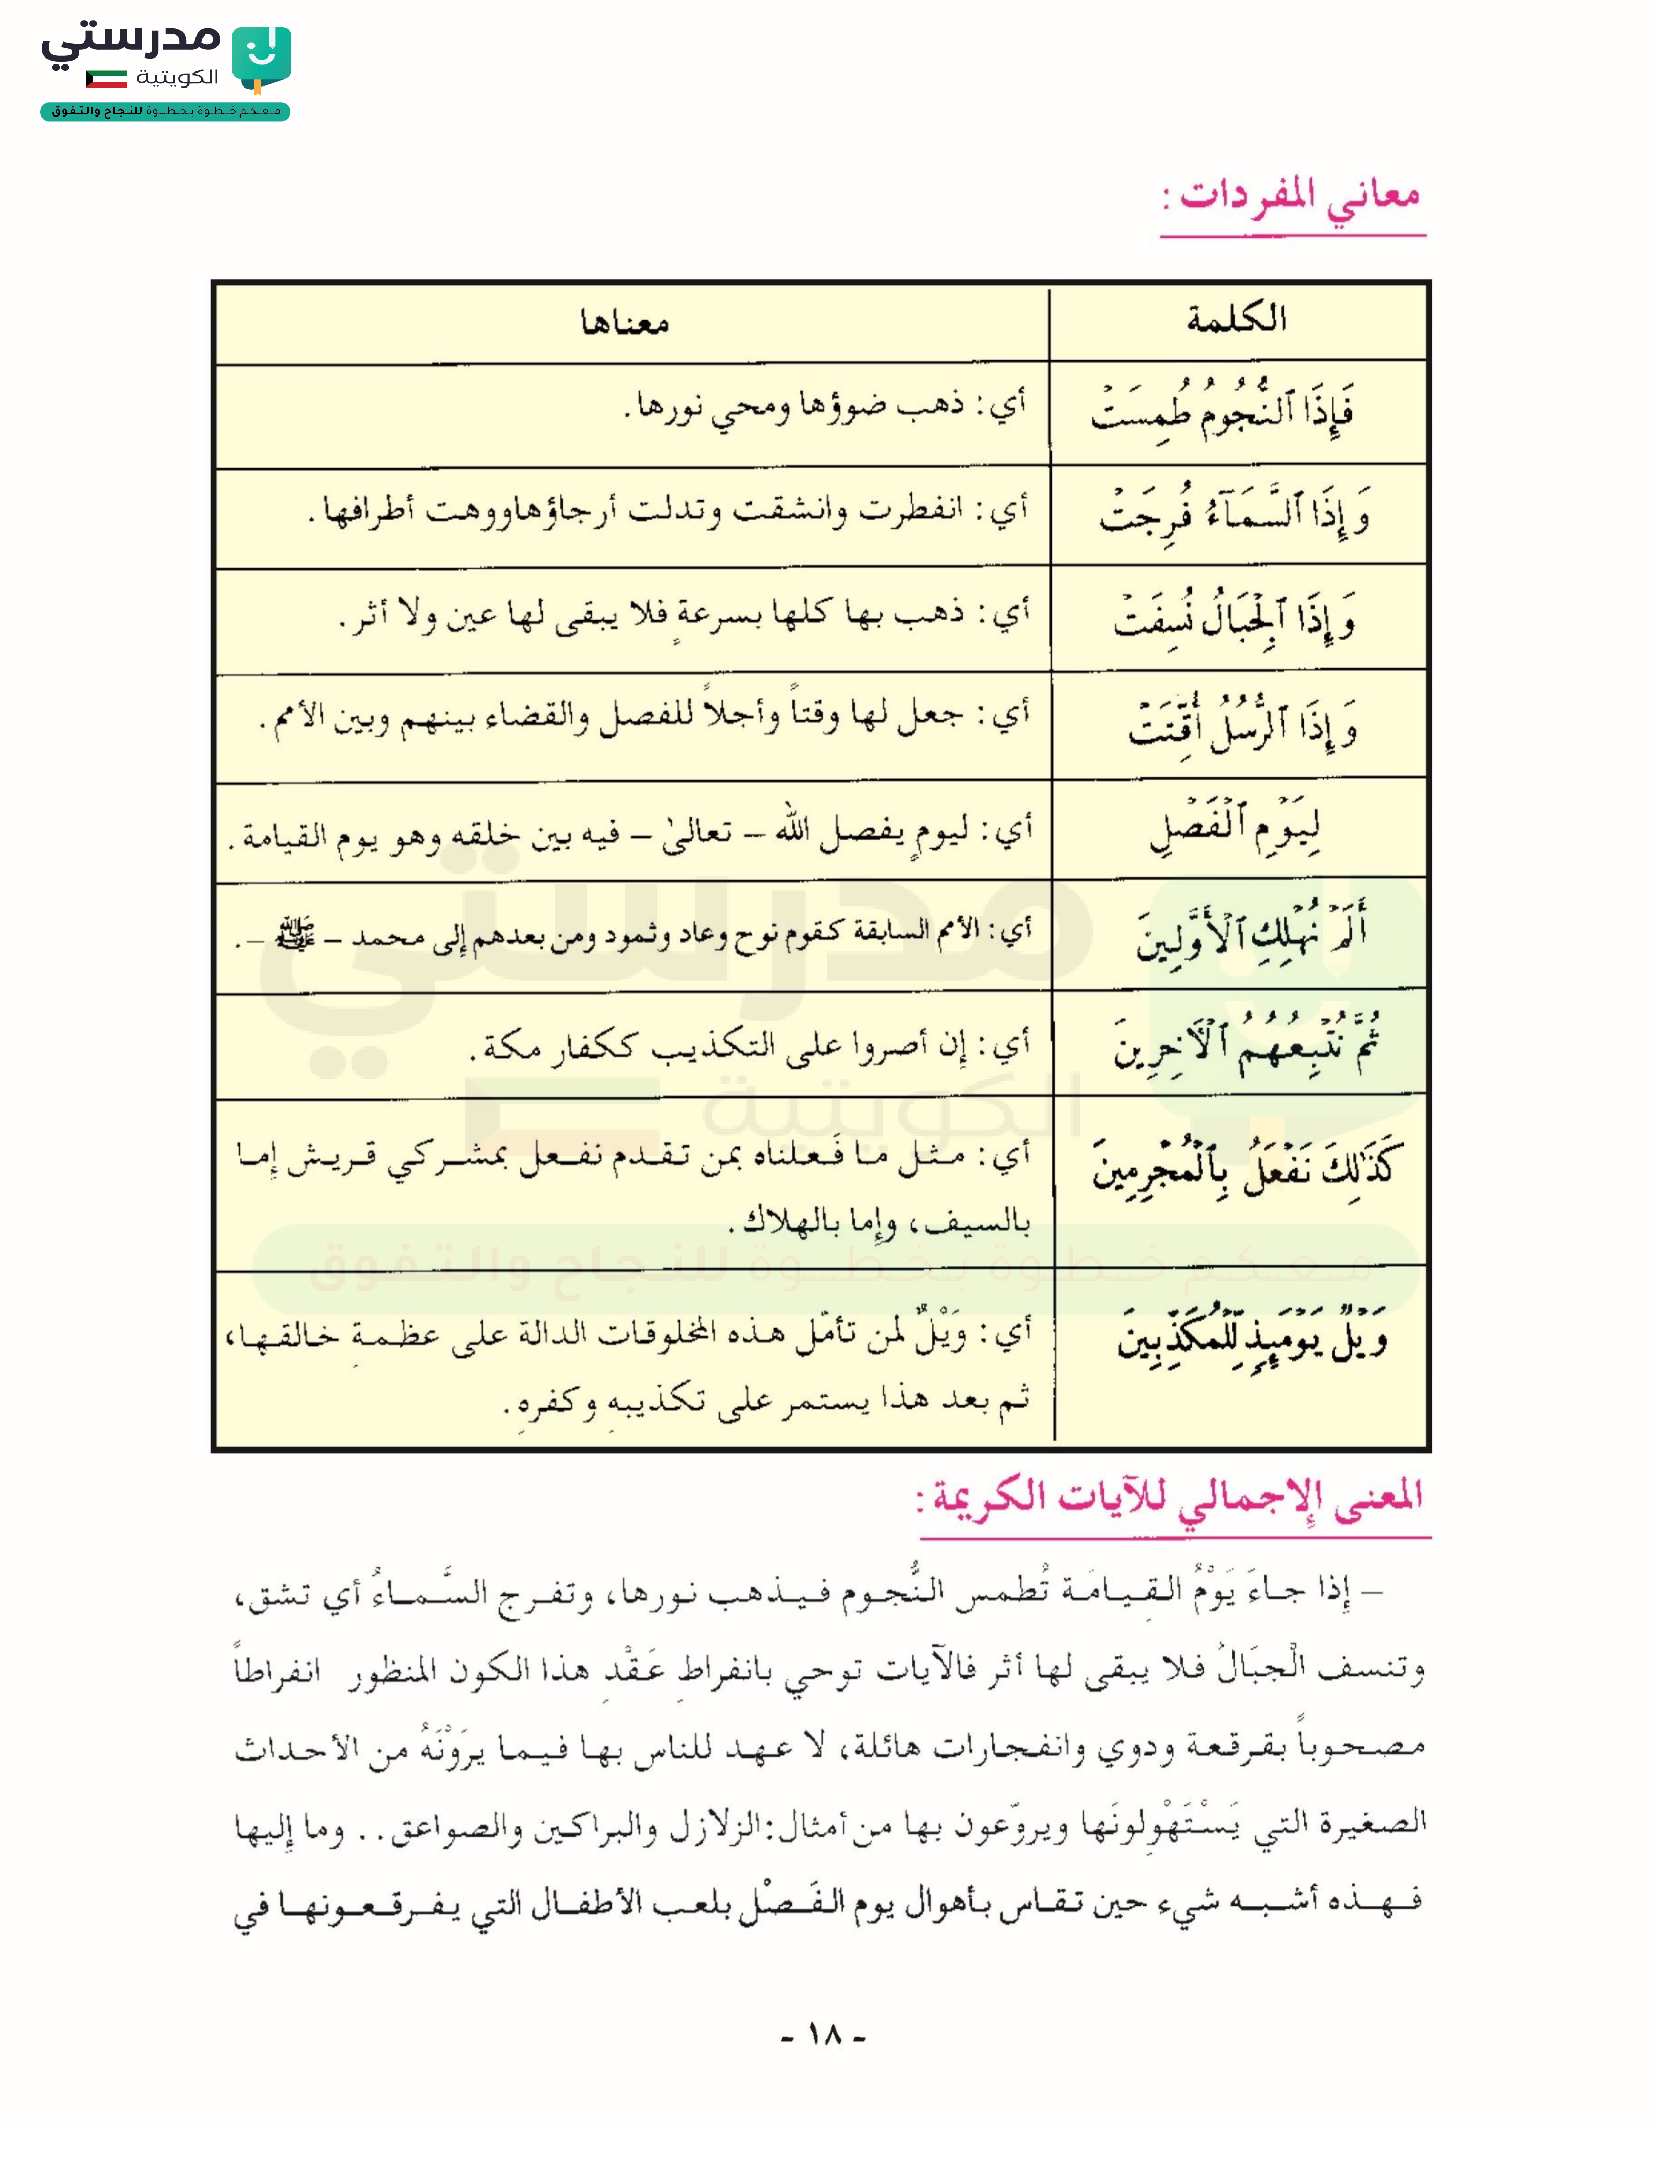 مدرستي
الكويتية
معكم خطوة بخطوة للنجاح والتفوق
معاني المفردات :
الكلمة
معناها
فَإِذَا ٱلنُّجُومُ طُمِسَتْ
أي: ذهب ضوؤها ومحي نورها.
وَإِذَا ٱلسَّمَآءُ فُرِجَتْ
أي: انفطرت وانشقت وتدلت أرجاؤهاووهت أطرافها.
وَإِذَا ٱلْجِبَالُ نُسِفَتْ
أي: ذهب بها كلها بسرعةٍ فلا يبقى لها عين ولا أثر.
وَإِذَا ٱلرُّسُلُ أُقِّتَتْ
أي: جعل لها وقتاً وأجلاً للفصل والقضاء بينهم وبين الأمم.
لِيَوْمِ ٱلْفَصْلِ
أي: ليومٍ يفصل الله – تعالىٰ – فيه بين خلقه وهو يوم القيامة.
أَلَمْ نُهْلِكِ ٱلْأَوَّلِينَ
أي: الأمم السابقة كقوم نوح وعاد وثمود ومن بعدهم إلى محمد – ﷺ –.
ثُمَّ نُتْبِعُهُمُ ٱلْآخِرِينَ
أي: إن أصروا على التكذيب ككفار مكة.
كَذَٰلِكَ نَفْعَلُ بِٱلْمُجْرِمِينَ
أي: مثل ما فَعلناه بمن تقدم نفعل بمشركي قريش إما
بالسيف، وإما بالهلاك.
وَيْلٌ يَوْمَئِذٍ لِّلْمُكَذِّبِينَ
أي: وَيْلٌ لمن تأمّل هذه المخلوقات الدالة على عظمةِ خالقها،
ثم بعد هذا يستمر على تكذيبهِ وكفرهِ.
المعنى الإجمالي للآيات الكريمة:
– إذا جاءَ يَوْمُ القِيامَة تُطمس النُّجوم فيذهب نورها، وتفرج السَّماءُ أي تشق،
وتنسف الْجبَالُ فلا يبقى لها أثر فالآيات توحي بانفراطِ عَقْدِ هذا الكون المنظور انفراطاً
مصحوباً بقرقعة ودوي وانفجارات هائلة، لا عهد للناس بها فيما يرَوْنَهُ من الأحداث
الصغيرة التي يَسْتَهْوِلونَها ويروّعون بها من أمثال:الزلازل والبراكين والصواعق.. وما إليها
فهذه أشبه شيء حين تقاس بأهوال يوم الفَصْل بلعب الأطفال التي يفرقعونها في
- ١٨ -